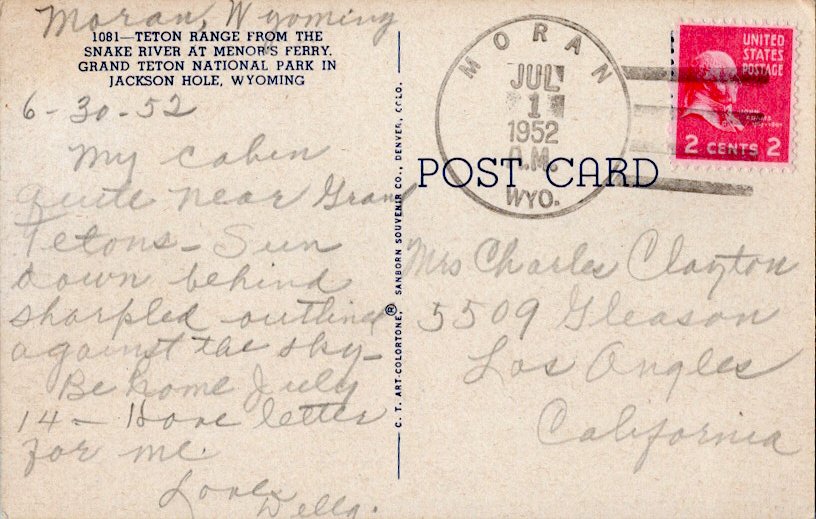 Moran, Wyoming
1081—TETON RANGE FROM THE
SNAKE RIVER AT MENOR'S FERRY.
GRAND TETON NATIONAL PARK IN
JACKSON HOLE, WYOMING
6-30-52
My cabin
quite near Grand
Tetons - Sun
down behind
sharpled outlined
against the sky -
Be home July
14 - Have letter
for me.
Love,
Della.
C. T. ART-COLORTONE, ® SANBORN SOUVENIR CO., DENVER, COLO.
MORAN
JUL
1
1952
WYO.
UNITED
STATES
POSTAGE
2 CENTS 2
POST CARD
Mrs Charles Clayton
5509 Gleason
Los Angles
California